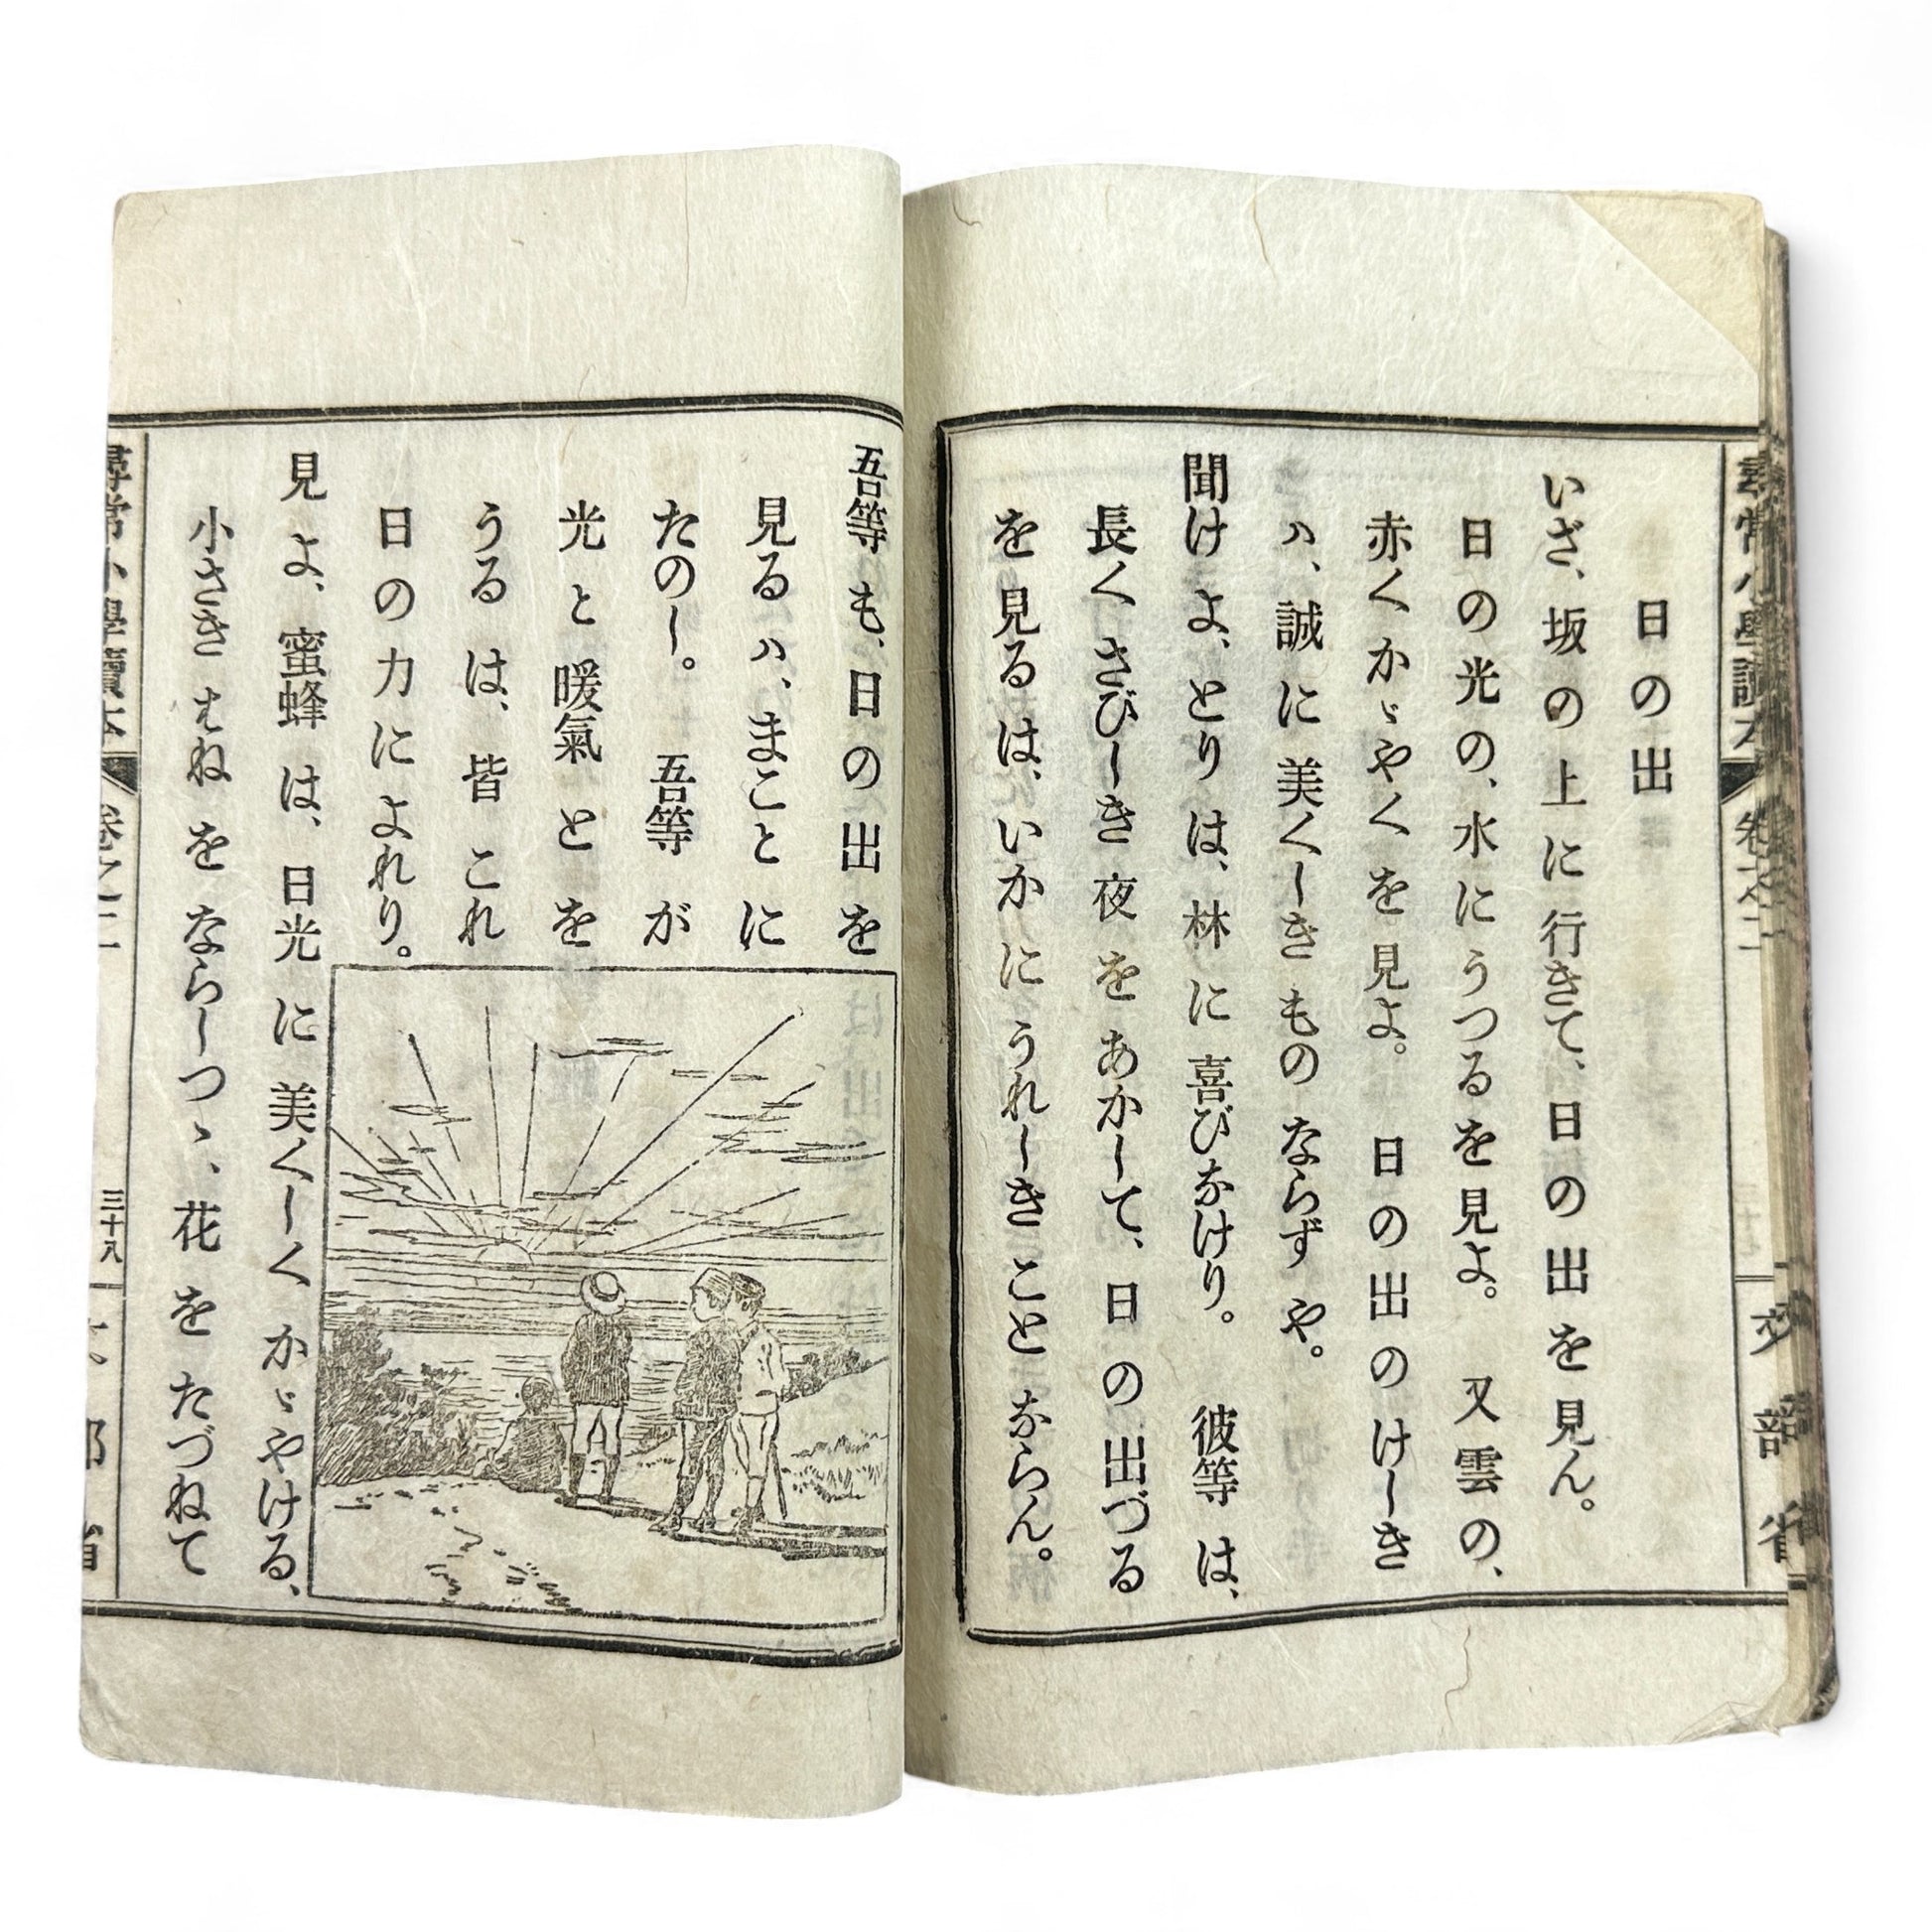 尋常小學讀本
卷之二
文部省
日の出
いざ、坂の上に行きて、日の出を見ん。
日の光の、水にうつるを見よ。又雲の、
赤くかゞやくを見よ。日の出のけしき
ハ、誠に美くしきものならずや。
聞けよ、とりは、林に喜びなけり。彼等は、
長くさびしき夜をあかして、日の出づる
を見るは、いかにうれしきことならん。
吾等も、日の出を
見るハ、まことに
たのし。吾等が
光と暖氣とを
うるは、皆これ
日の力によれり。
見よ、蜜蜂は、日光に美くしくかゞやける、
小さきはねをならしつゝ、花をたづねて
尋常小學讀本
卷之二
三十八